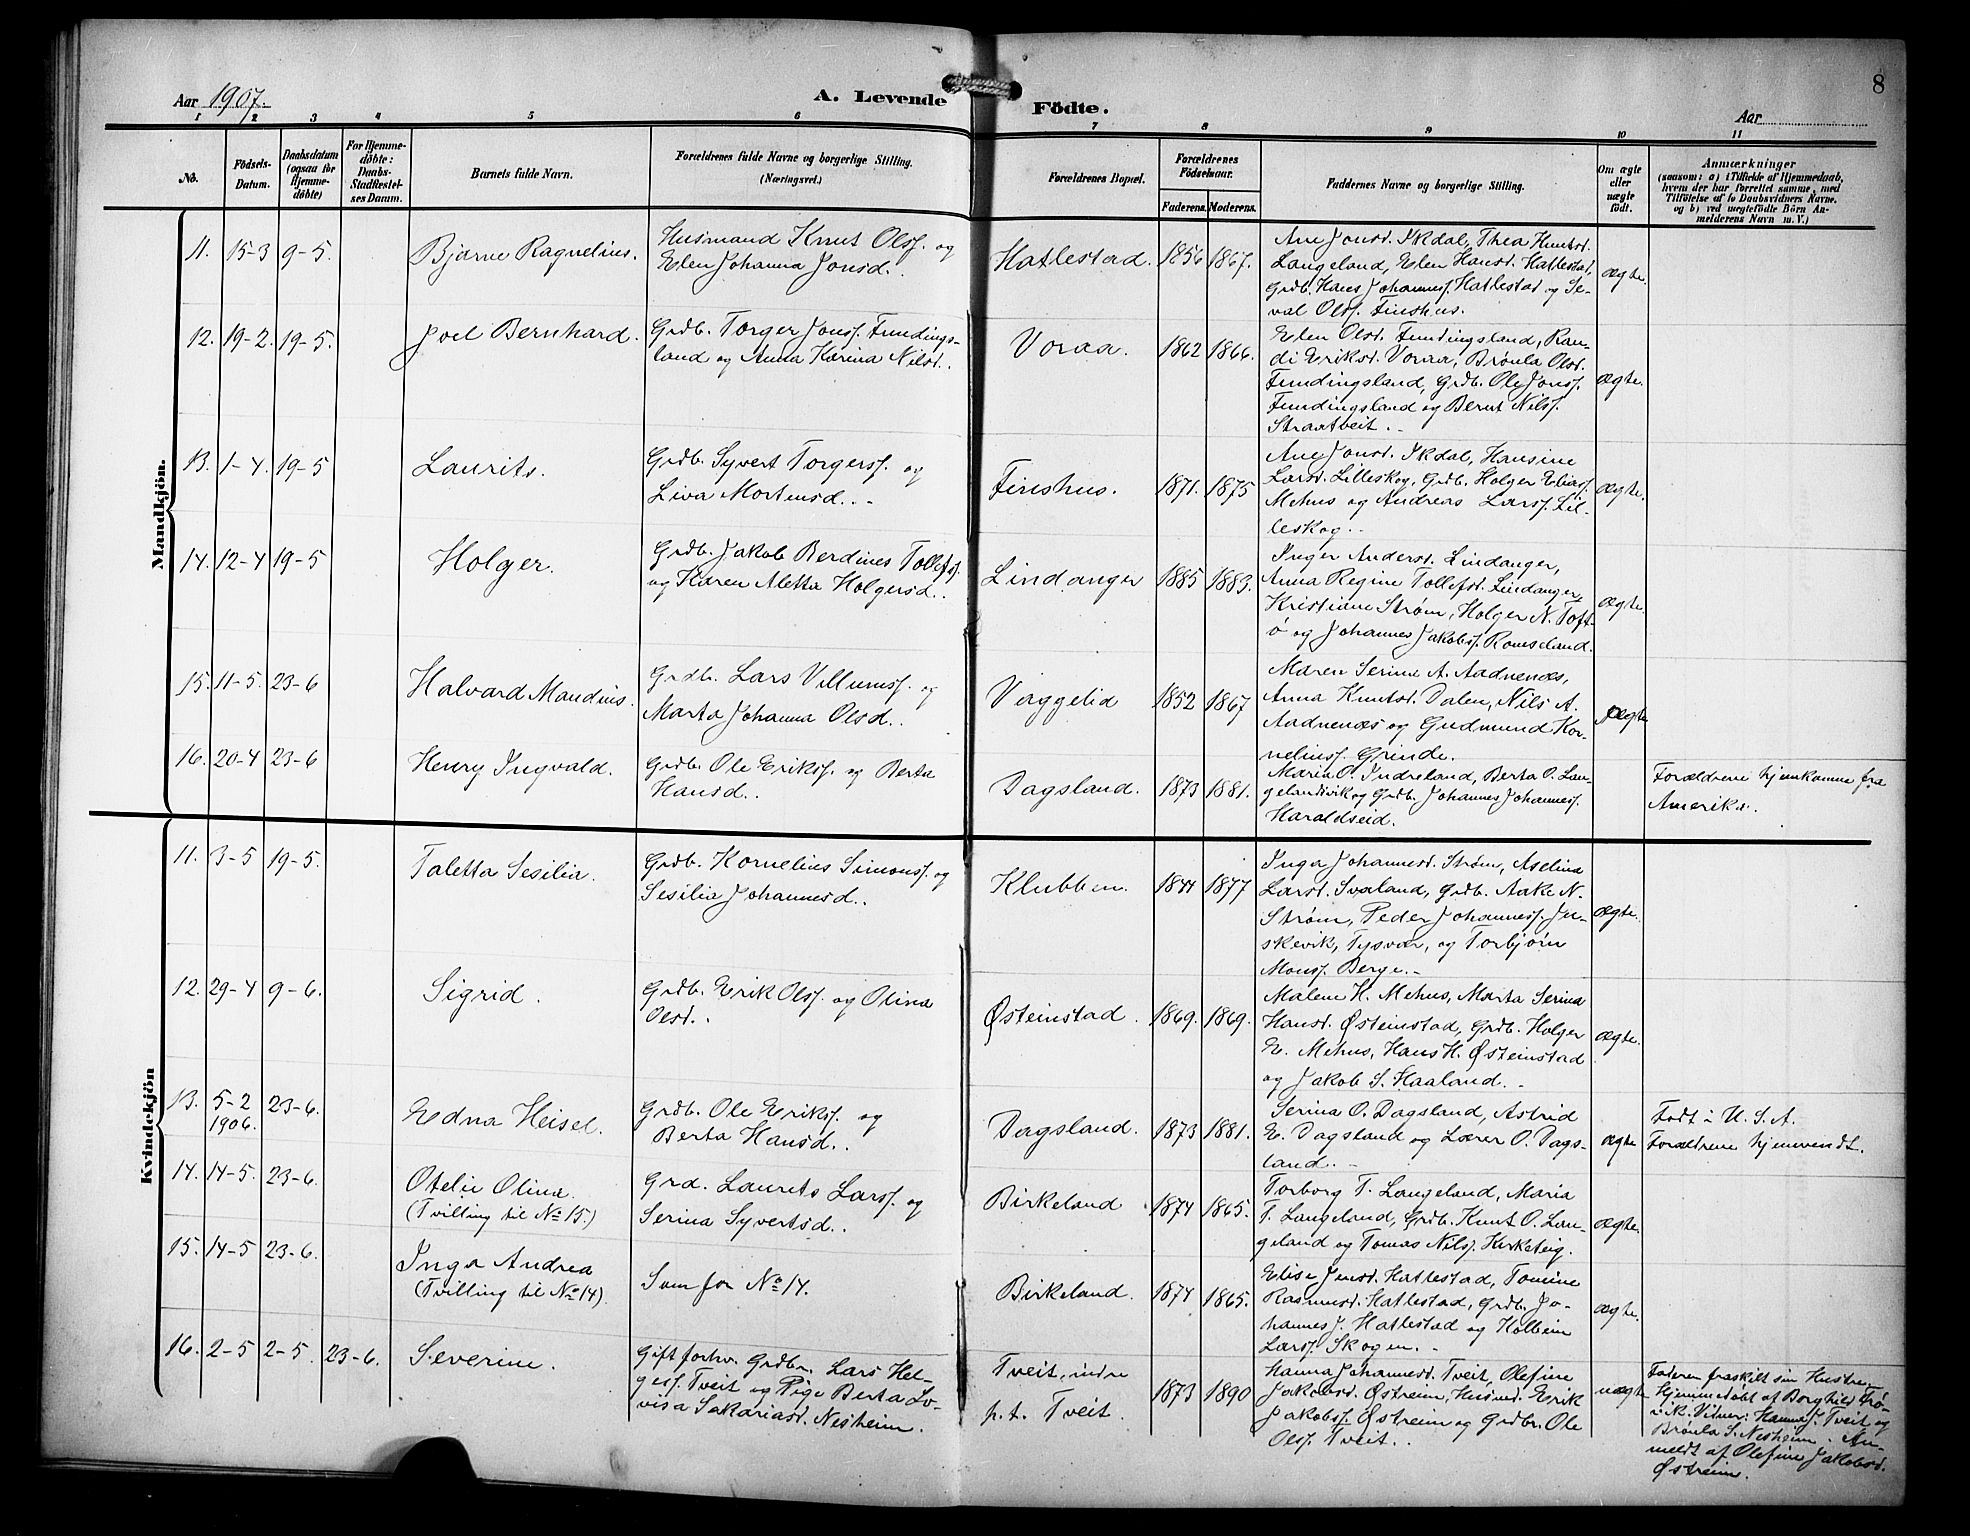 8
Aar 1907.
A. Levende
Födte.
Aar
1 2 3 4 5 6 7 8 9 10 11
No.
Födsels-
Datum.
Daabsdatum
(ogsaa for
Hjemme-
döbte)
For Hjemme-
döbte:
Daabs-
Stadfæstel-
ses Datum.
Barnets fulde Navn.
Forældrenes fulde Navne og borgerlige Stilling.
(Næringsvei.)
Forældrenes Bopæl.
Forældrenes
Födselsaar.
Faderens. Moderens.
Faddernes Navne og borgerlige Stilling.
Om ægte
eller
uægte
født.
Anmærkninger
(saasom: a) i Tilfælde af Hjemmedaab,
hvem der har forrettet samme, med
Tilföielse af to Daabsvidners Navne.
og b) ved uægtefödte Börn An-
melderens Navn m. V.)
Mandkjön.
11. 15-3 9-5. Bjarne Ragnelius.
Husmand Knut Olsf. og
Elen Johanna Jonsd..
Hatlestad. 1856 1867.
Ane Jonsd. Ikdal, Thea Knutsd.
Langeland, Elen Hansd. Hatlestad,
Grdb. Hans Johannesf. Hatlestad og Se-
val Olsf. Finshus.
ægte.
12. 19-2. 19-5. Joel Bernhard.
Grdb. Torger Jonsf. Fundings-
land og Anna Karina Nilsd..
Voraa. 1862 1866.
Elen Olsd. Fundingsland, Ran-
di Eriksd. Voraa, Brønla Olsd.
Fundingsland, Grdb. Ole Jonsf.
Fundingsland og Bernt Nilsf.
Straatveit.-
ægte.
13. 1-4. 19-5 Laurits.
Grdb. Syvert Torgersf. og
Liva Mortensd..-
Finshus. 1871. 1875
Ane Jonsd. Ikdal, Hansine
Larsd. Lilleskog, Grdb. Holger Eliasf.
Mehus og Andreas Larsf. Lil-
leskog.-
ægte.
14. 12-4 19-5 Holger.
Grdb. Jakob Berdines Tollefsf.
og Karen Aletta Holgersd..
Lindanger 1885 1883.
Inger Andersd. Lindanger,
Anna Regine Tollefsd. Lindanger,
Kristiane Strøm, Holger N. Toft-
ø og Johannes Jakobsf. Romseland.
ægte.
15. 11-5. 23-6 Halvard Mandius.
Grdb. Lars Villumsf. og
Marta Johanna Olsd..
Vaggelid 1852 1867
Maren Serine A. Aadnenæs,
Anna Knutsd. Dalen, Nils A.
Aadnenæs og Gudmund Kor-
neliusf. Grinde.
ægte
16. 20-4 23-6 Henry Ingvald.
Grdb. Ole Eriksf. og Berta
Hansd..
Dagsland. 1873 1881.
Maria O. Indreland, Berta O. Lan-
gelandsvik og Grdb. Johannes Johannesf.
Haraldseid.
Forældrene hjemkomne fra
Amerika.
Kvindekjön
11. 3-5 19-5. Taletta Sesilia.
Grdb. Kornelius Simonsf. og
Sesilia Johannesd..
Klubben. 1844 1877
Inga Johannesd. Strøm, Aselina
Larsd. Svaland, Grdb. Aake N.
Strøm, Peder Johannesf. Ju-
skevik, Tysvær, og Torbjørn
Monsf. Berge.-
ægte.
12. 29-4 9-6. Sigrid.
Grdb. Erik Olsf. og Olina
Olsd..
Østeinstad. 1869. 1869.
Malene H. Mehus, Marta Serina
Hansd. Østeinstad, Grdb. Holger
E. Mehus, Hans H. Østeinstad
og Jakob S. Haaland.-
ægte.
13. 5-2
1906. 23-6. Edna Heisel.
Grdb. Ole Eriksf. og
Berta Hansd..
Dagsland. 1873 1881.
Serina O. Dagsland, Astrid
E. Dagsland og Lærer O. Dags-
land.-
ægte
Født i U.S.A.
Forældrene hjemvendt.
14. 14-5. 23-6. Otelie Olina.
(Tvilling til No 15.)
Grd. Laurits Larsf. og
Serina Syvertsd..
Birkeland 1874 1865.
Torborg T. Langeland, Maria
T. Langeland, Grdb. Knut O. Lan-
geland og Tomas Nilsf. Kirketeig.
ægte.
15. 14-5 23-6. Inga Andrea
(Tvilling til No 14).
Som for No 14.
Birkeland. 1874 1865.
Elise Jensd. Hatlestad, Tomine
Rasmusd. Hatlestad, Grdb. Jo-
hannes J. Hatlestad og Kolbein
Larsf. Skogen.-
ægte.
16. 2-5 2-5. 23-6. Severine.
Gift forhv. Grdbr. Lars Hel-
gesf. Tveit og Pige Berta Lo-
visa Sakariasd. Nesheim.
Tveit, indre
p.t. Tveit. 1873 1890
Hanna Johannesd. Tveit, Olefine
Jakobsd. Østreim, Husmd. Erik
Jakobsf. Østreim og Grdbr. Ole
Olsf. Tveit..
uægte
Faderen fraskilt sin Hustru.
Hjemmedøbt af Borghild Frø-
vik. Vitner: Hanna J. Tveit og
Brønla S. Nesheim. An-
meldt af Olefine Jakobsd.
Østreim.